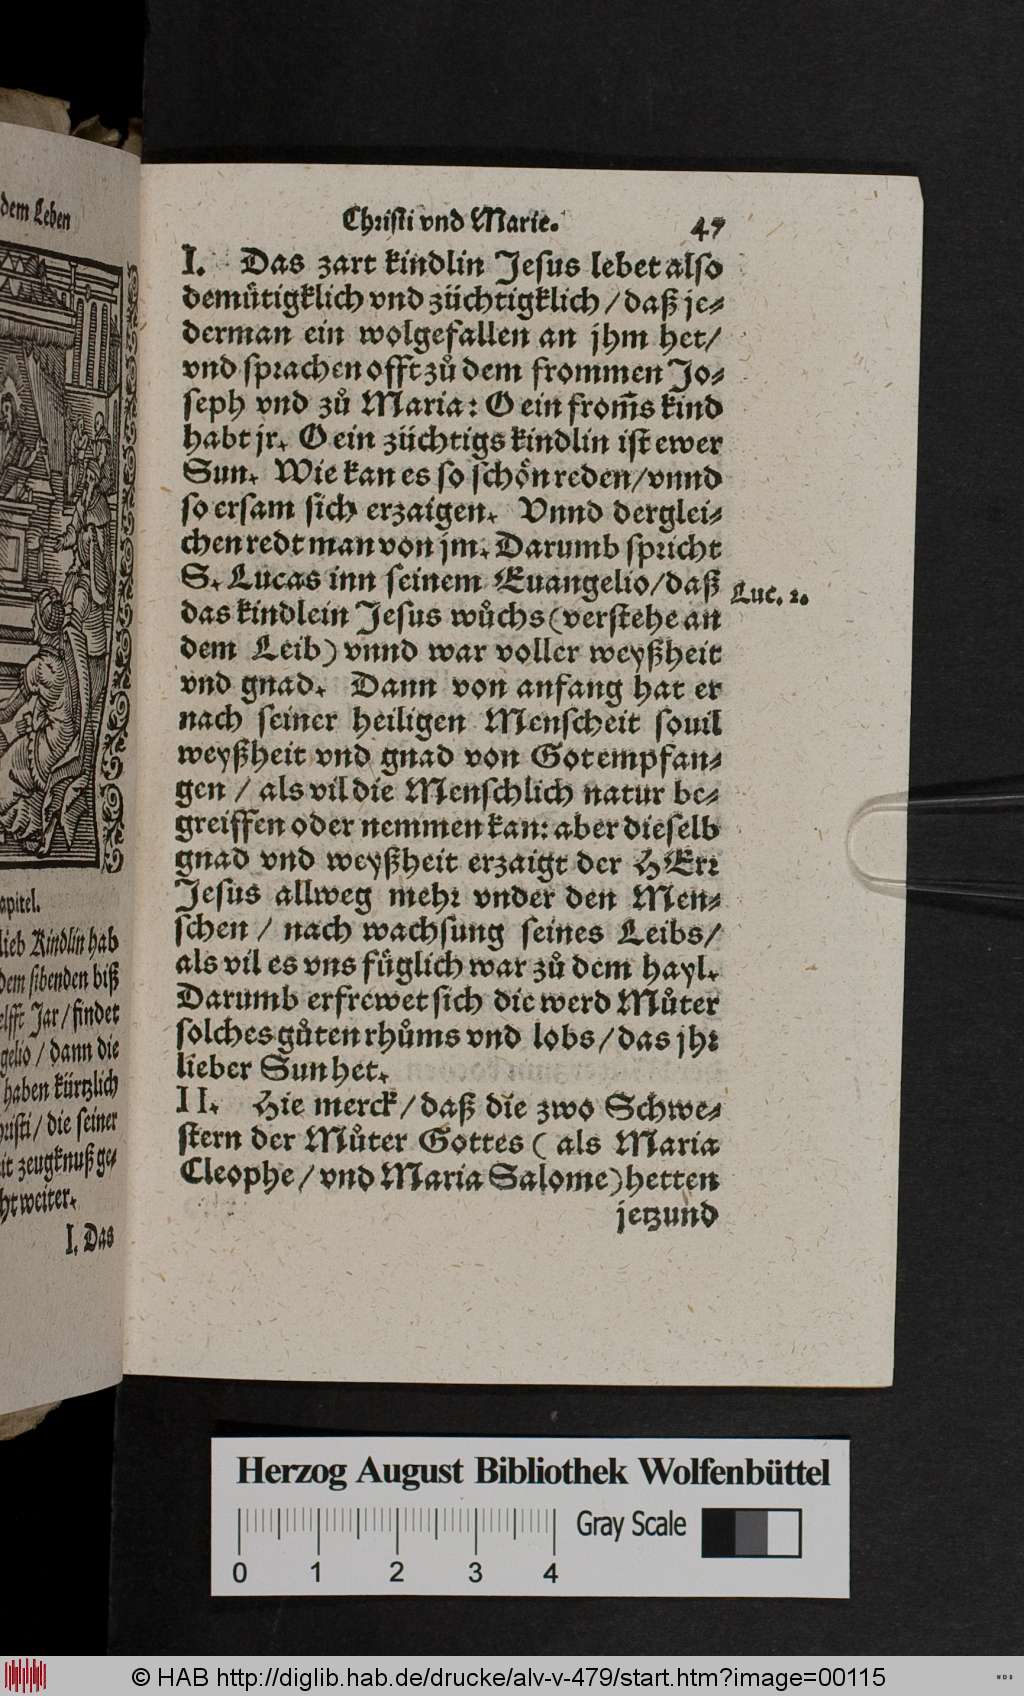 dem Leben
apitel.
lieb Kindlin hab
dem sibenden biß
elfft Jar / findet
gelio / dann die
haben kürtzlich
hristi / die seiner
it zeugknuß ge⸗
ht weiter.
I. Das
Christi vnd Marie. 47
I. Das zart kindlin Jesus lebet also
demütigklich vnd züchtigklich / daß je⸗
derman ein wolgefallen an jhm het /
vnd sprachen offt zů dem frommen Jo⸗
seph vnd zů Maria: O ein from̃s kind
habt jr. O ein züchtigs kindlin ist ewer
Sun. Wie kan es so schön reden / vnnd
so ersam sich erzaigen. Vnnd derglei⸗
chen redt man von jm. Darumb spricht
S. Lucas inn seinem Euangelio / daß
Luc. 2.
das kindlein Jesus wůchs (verstehe an
dem Leib) vnnd war voller weyßheit
vnd gnad. Dann von anfang hat er
nach seiner heiligen Menscheit souil
weyßheit vnd gnad von Got empfan⸗
gen / als vil die Menschlich natur be⸗
greiffen oder nemmen kan: aber dieselb
gnad vnd weyßheit erzaigt der HErr
Jesus allweg mehr vnder den Men⸗
schen / nach wachsung seines Leibs /
als vil es vns füglich war zů dem hayl.
Darumb erfrewet sich die werd Můter
solches gůten rhůms vnd lobs / das jhr
lieber Sun het.
II. Hie merck / daß die zwo Schwe⸗
stern der Můter Gottes ( als Maria
Cleophe / vnd Maria Salome) hetten
jetzund
Herzog August Bibliothek Wolfenbüttel
Gray Scale
0 1 2 3 4
© HAB http://diglib.hab.de/drucke/alv-v-479/start.htm?image=00115